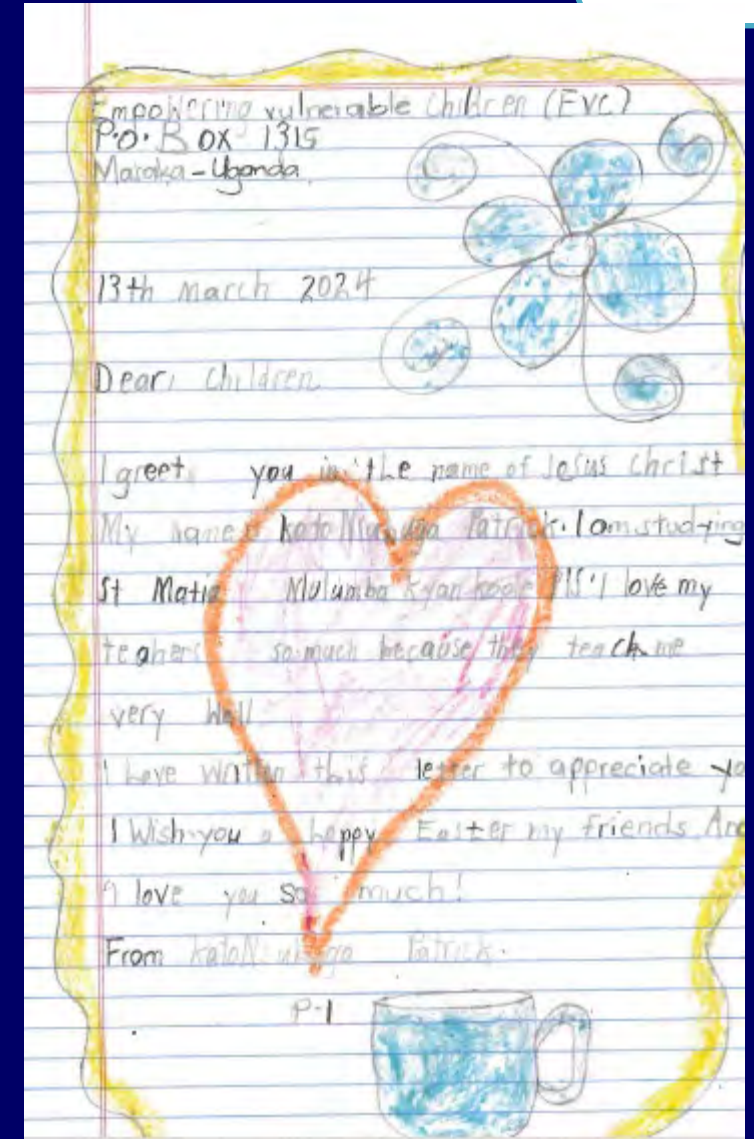 Empowering vulnerable Children (EVC)
P.O. BOX 1315
Masaka-Uganda
13th march 2024
Dear, Children
I greet you in the name of Jesus Christ
My name is Kato Patrick. I am studying
St Matia Mulumba P/S. I love my
teahers so much because they teach me
very well
I have written this letter to appreciate yo
I Wish you a happy Easter my friends And
I love you so much!
From Kato Patrick.
P-1